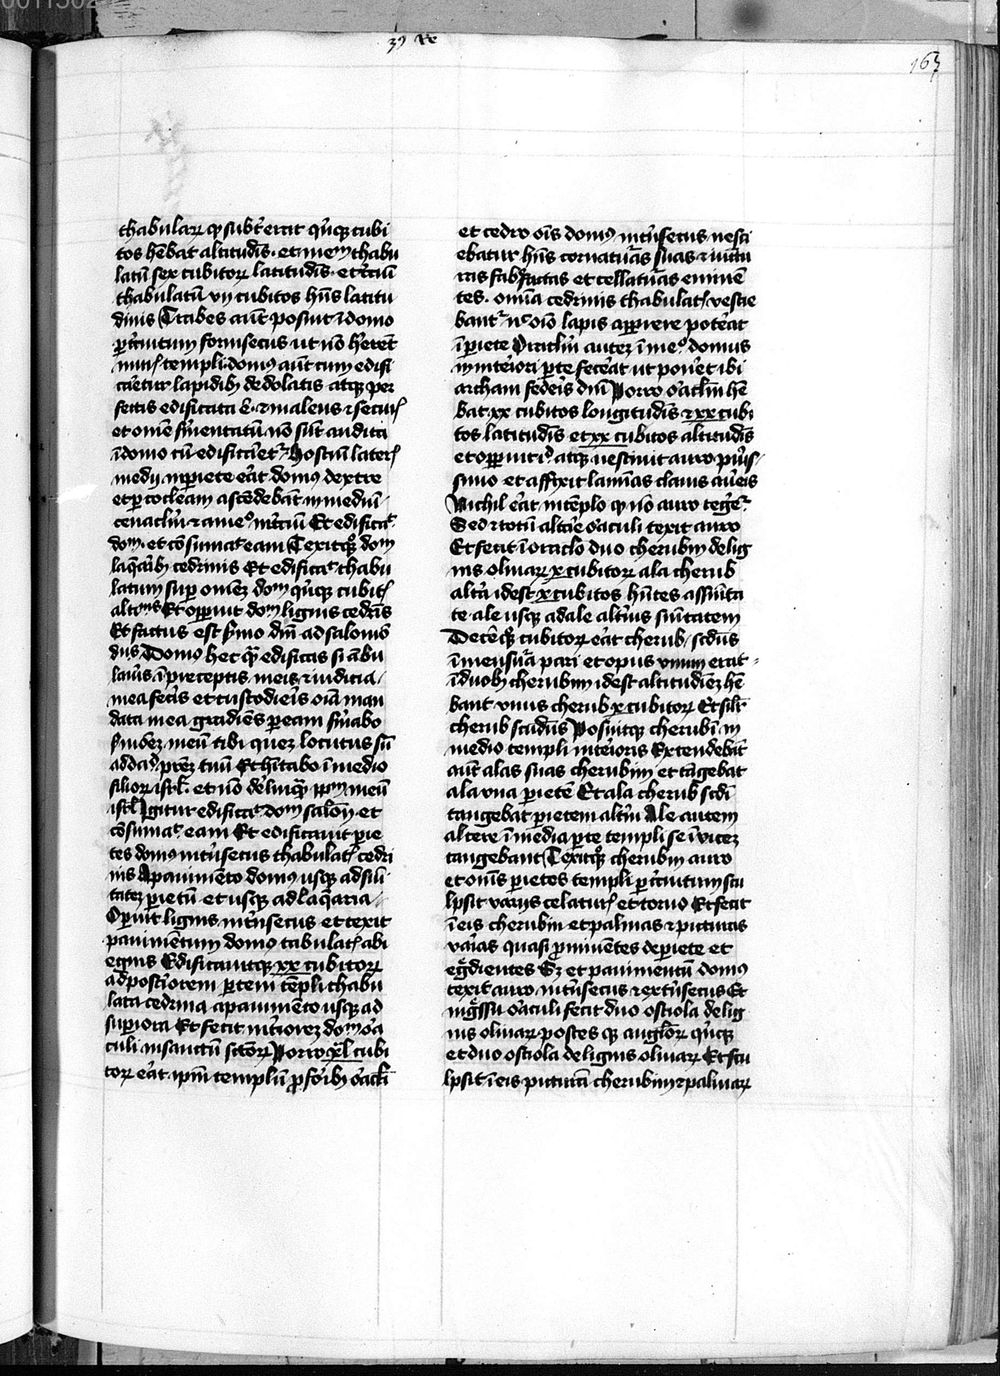 3us Re
163
thabulatū qd subt̕ erat qn̄qꝫ cubi
tos hēbat altitudīs · et mediū thabu
latū sex cubitoꝝ latitudīs · et t̕ciū
thabulatū vij cubitos hn̄s latitu
dinis Trabes aūt posuit ī domo
ꝑ circuitum forinsecus ut nō hērēt
muris templi · domus aūt cum edifi
caretur lapidibꝫ de dolatis atqꝫ per
fectis edificata ē · ⁊ maleus ⁊ securis
et omē ferramentū nō sūt audita
ī domo cū edificaret̕ · Hostiū lateris
medij in pariete erat domus dextre
et ꝑ cocleam ascēdebāt in mediū
cenaclm̄ ⁊ a medio in t̕ciū Et edificat
domū · et cōsumat eam Texitqꝫ domū
laqaribꝫ cedrinis Et edificat thabu
latum suꝑ omēꝫ domū qn̄qꝫ cubitis
altitudinis Et oꝑuit domū lignis cedrīs
Et factus est sermo dnī ad salomō
dicens Domus hec quā edificas si ābu
laueris ī preceptis meis ⁊ iudicia
mea feceris et custodieris oīa man
data mea gradiēs ꝑ eam firmabo
sermoneꝫ meū tibi queꝫ locutus sū
ad dauid patreꝫ tuū Et hītabo ī medio
filioꝝ isrl̄ · et nō derlinquā ppm̄ meū
isrl̄ Igitur edificat domū salōn · et
cōsumat eam Et edificauit parie
tes domus int̕nsecus thabulatis cedri
nis A pauimēto domus usqꝫ ad sūi
tateꝫ parietū et usqꝫ ad laqaria ·
Oꝑuit lignis int̕nsecus et texit
pauimentum domus tabulatis abi
egnis Edificauitqꝫ xx cubitoꝝ
ad posteriorem partem tēpli thabu
lata cedrina a pauimēto usqꝫ ad
suꝑiora Et fecit int̕ioreꝫ domū ora
culi in sanctū sctōꝝ Porro xl cubi
toꝝ erat ipm̄ templū ꝓ foribꝫ oracli
et cedro oīs domus int̕nsecus uesti
ebatur hn̄s tornaturas suas ⁊ iūctu
ras fabrefactas et cellaturas eminē
tes · omīa cedrinis thabulatis vestie
bantur nec oīo lapis apparere poterat
ī pariete Oraclm̄ auteꝫ ī medio domus
in int̕iori parte fecerat ut poneret ibi
archam federis dnī Porro oraclm̄ hē
bat xx cubitos longitudīs ⁊ xx cubi
tos latitudīs et xx cubitos altitudīs
et oꝑuit illud atqꝫ uestiuit auro puris
simo et affixit lamīas clauis aureis
Nichil erat in tēplo qd nō auro teger̕
Sed ⁊ totū altare oraculi texit auro
Et fecit ī oraclo duo cherubin de lig
nis oliuaꝝ x cubitoꝝ ala cherub
alt̕a id est x cubitos hn̄tes a sūmita
te ale usqꝫ ad ale alt̕ius sūitatem
Deceqꝫ cubitoꝝ erat cherub scd̄us
ī mensura pari et opus vnum erat
ī duobꝫ cherubin id est altitudinēꝫ hē
bant vnus cherub x cubitoꝝ Et silr̄
cherub scd̄us Posuitqꝫ cherubī in
medio templi int̕ioris Extendebāt
aūt alas suas cherubim et tāgebat
ala vna parietē Et ala cherub scd̄i
tangebat parietem alt̕m Ale autem
altere ī media parte templi se īuiceꝫ
tangebant Texitqꝫ cherubin auro
et omīs parietes templi ꝑ circuitum scu
lpsit varijs celaturis et torno Et fecit
ī eis cherubin et palmas ⁊ picturas
varias quasi ꝓminentes de pariete et
egredientes Sꝫ et pauimentū domus
texit auro int̕nsecus ⁊ ext̕nsecus Et
ingressu oraculi fecit duo ostiola de lig
nis oliuaꝝ postes qꝫ anguloꝝ qn̄qꝫ
et duo ostiola de lignis oliuaꝝ Et scu
lpsit ī eis picturā cherubin ⁊ palmaꝝ